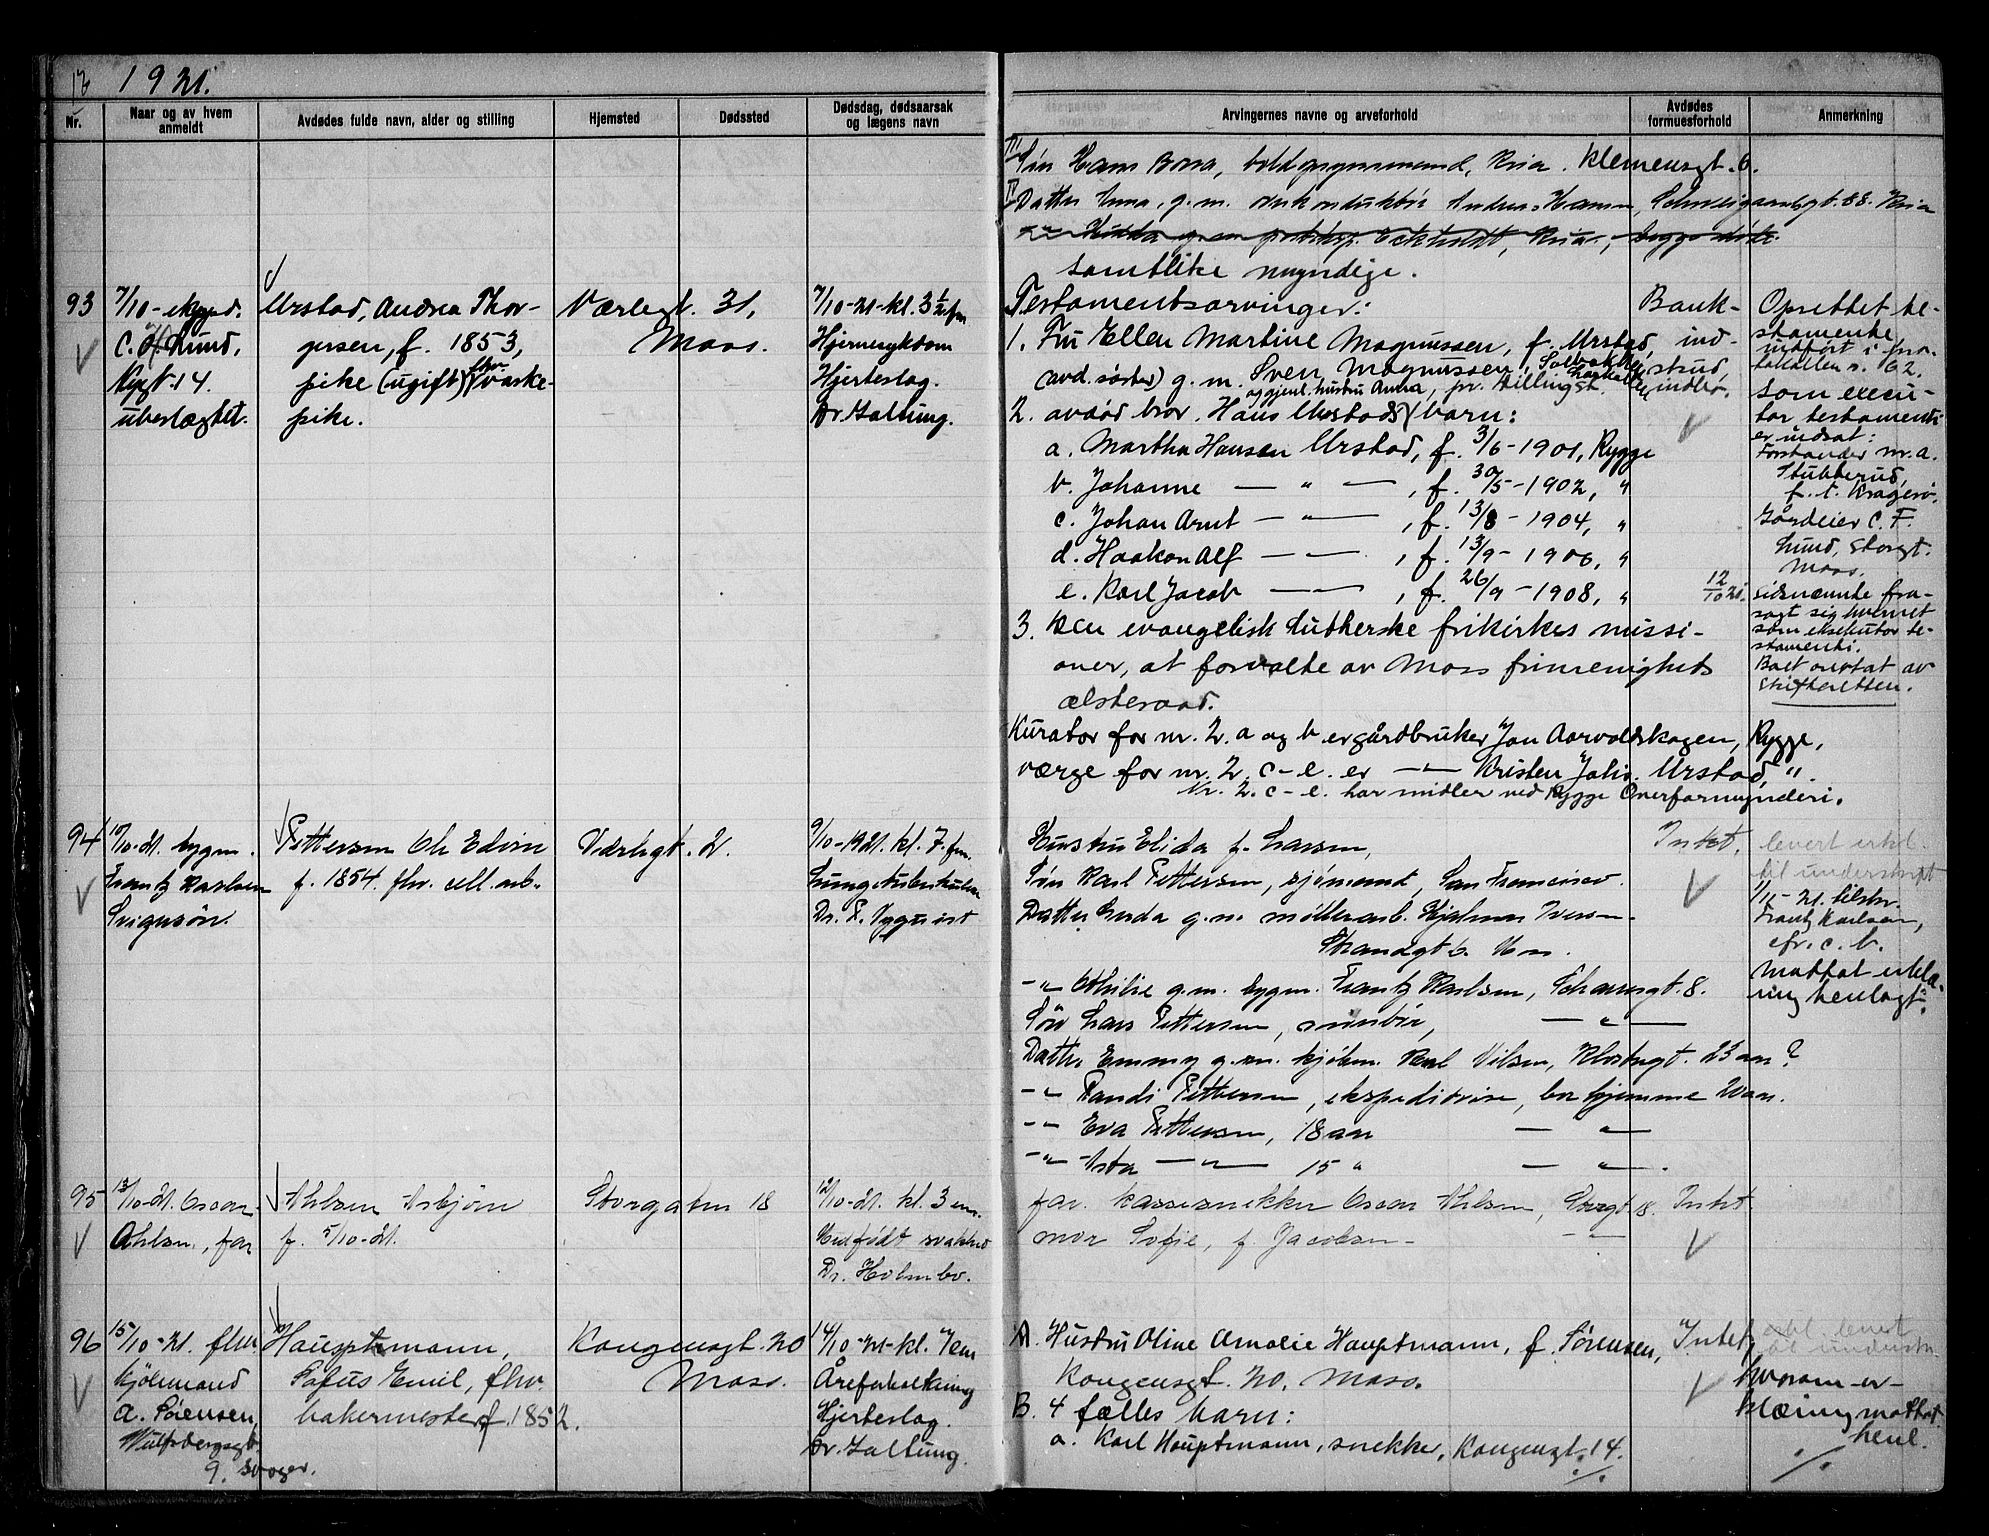 12 1921.
Nr.
Naar og av hvem anmeldt
Avdødes fulde navn, alder og stilling
Hjemsted
Dødssted
Dødsdag, dødsaarsak og lægens navn
Arvingernes navne og arveforhold
Avdødes formuesforhold
Anmerkning
Søn Hans Bora, Kria. Klemensgt. 6.
Datter Anna, g.m. Schweigaardsgt. 88. Kria
samtlike myndige.
93
7/10-
C. F. Lund,
Nygt. 14.
ubeslægtet.
Urstad, Andrea Thor-
gersen, f. 1853,
pike (ugift) fhv. vaske-
pike.
Værlegt. 31,
Moss.
7/10-21-kl. 3 1/2 fm
Hjernesykdom
Hjerteslag.
Dr. Galtung.
Testamentsarvinger:
1. Fru Ellen Martine Magnussen, f. Urstad,
(avd. søster) g.m. Sven Magnussen, Solbakken,
2. avdød bror Hans Urstads barn:
a. Martha Hansen Urstad, f. 3/6-1901, Rygge
b. Johanne — " — , f. 30/5-1902, "
c. Johan Arnt — " — , f. 13/8-1904, "
d. Haakon Alf — " — , f. 13/9-1906, "
e. Karl Jacob — " — , f. 26/9-1908, "
3. Den evangelisk lutherske frikirkes missi-
oner, at forvalte av Moss frimenigheds
ælsteraad.
Kurator for nr. 2. a og b er gårdbruker Jon Aarvoldskogen, Rygge,
værge for nr. 2. c-e. er —"— Kristen Johs. Urstad, ".
Nr. 2. c-e. har midler ved Rygge Overformynderi.
Bank-
ind-
skud,
indbo.
Oprettet te-
stamente
indført i pro-
tokollen s. 162.
Som execu-
tor testamenti
er indsat:
Forstander m.a.
Stubberud,
f. t. Kragerø.
Gårdeier C. F.
Lund, Storgt.
Moss.
12/10 21.
sidsnævnte fra-
sagt sig hvervet
som eksekutor te-
stamenti.
Boet overtat av
skifteretten.
94
10/10-21. bygm.
Frantz Karlsen
Svigersøn.
Pettersen Edvin
f. 1854. fhv. cell. arb.
Værlegt. 2.
9/10-1921. kl. 7. fm.
Lungetuberkulose
Dr. F. Nyquist
Hustru Elida f. Larsen,
Søn Karl Pettersen, sjømand, San Francisco.
Datter Gerda g.m. møllearb. Hjalmar Iversen
Strandgt 6. Moss.
—"— Othilie g.m. bygm. Frantz Karlsen, 8.
Søn Lars Pettersen, — " —
Datter Emmy g.m. kjøbm. Karl Nilsen, Klostergt. 23 aar?
—"— Randi Pettersen, ekspeditrise, bor hjemme 20 aar.
—"— Eva Pettersen, 18 aar — " —
—"— Asta — " — 15 " — " — .
Intet.
levert erkl.
til underskrift
1/11-21. tilskr.
Frantz Karlsen,
cfr. c. b.
Mottat erklæ-
ring henlagt.
95
13/10-21. Oscar
Ahlsen, far
Ahlsen Asbjørn
f. 5/10-21.
Storgaten 18
12/10-21. kl. 3 em.
Medfødt svakhed
Dr. Holmbo.
far. kassesnekker Oscar Ahlsen, Storgt 18. Intet.
mor Sofie, f. Jacobsen — " —
96
15/10-21. fhv.
kjøbmand
A. Sørensen,
Wulfsbergsgt.
9. svoger.
Hauptmann,
Sofus Emil, fhv.
bakermester f. 1852.
Kongensgt. 20
Moss.
14/10-21-kl. 7 em
Åreforkalkning
Hjerteslag.
Dr. Galtung.
A. Hustru Oline Amalie Hauptmann, f. Sørensen,
Kongensgt. 20, Moss.
B. 4 fælles barn:
a. Karl Hauptmann, snekker, Kongensgt. 14.
Intet.
erkl. levert
til underskr.
hvorom er-
klæring mottat
henl.